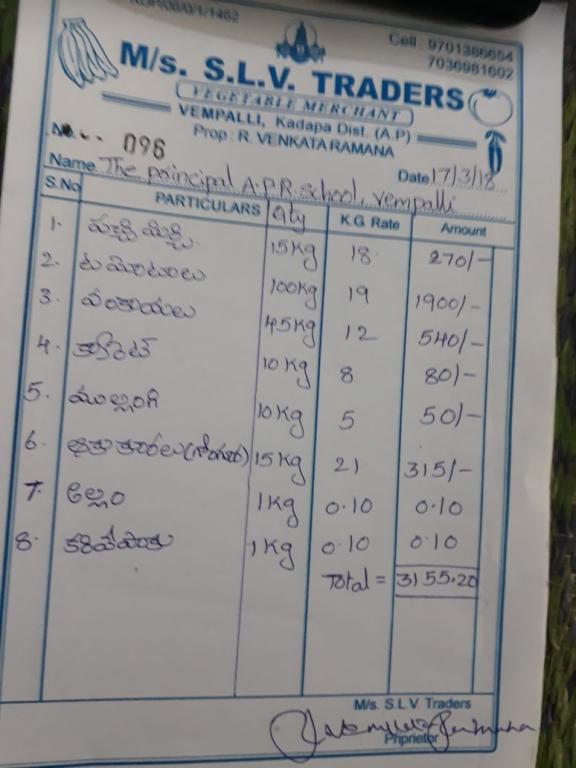 M/s. S.L.V. TRADERS
Cell : 9701386654
7036981602
VEGETABLE MERCHANT
VEMPALLI, Kadapa Dist. (A.P)
Prop : R. VENKATA RAMANA
No. 096
Date 17/3/18
Name The principal A.P.R. School, Vempalli
S.No PARTICULARS Qty K.G. Rate Amount
1. పచ్చి మిర్చి 15 Kg 18 270/-
2. టమోటాలు 100 Kg 19 1900/-
3. వంకాయలు 45 Kg 12 540/-
4. క్యారెట్ 10 Kg 8 80/-
5. ముల్లంగి 10 Kg 5 50/-
6. ఆకు కూరలు (గోంగూర) 15 Kg 21 315/-
7. అల్లం 1 Kg 0.10 0.10
8. కరివేపాకు 1 Kg 0.10 0.10
Total = 3155.20
M/s. S.L.V. Traders
Priprietor